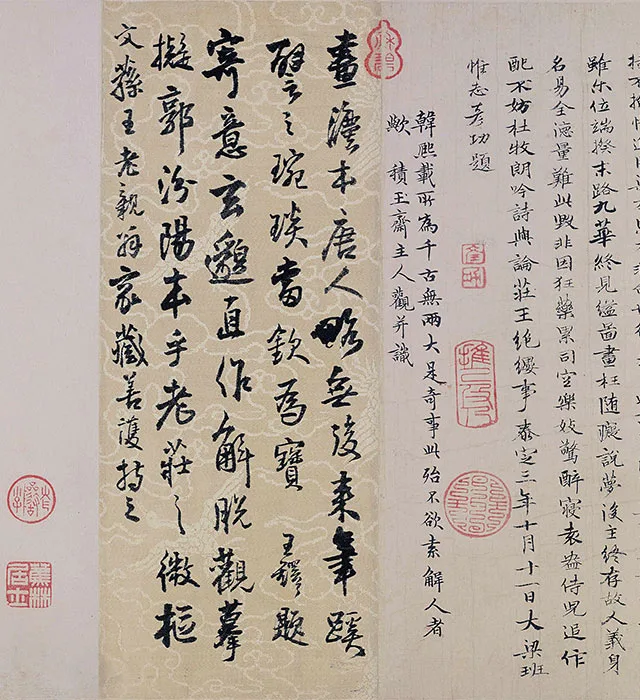 雖尔位端揆末路九華終見縊啚畫枉随癡說夢後主終存故人義身
名易全德量難此毀非因狂藥累司空樂妓驚醉寝袁盎侍児追作
配不妨杜牧朗吟詩與論莊王絶纓事 泰定三年十月十一日大梁班
惟志彦功題
韓熙載所為千古無兩大是奇事此殆不欲素解人者
歟 積玉齋主人觀并識
畫灋本唐人略無後来筆蹊
譬之琬琰當欽為寶 王鐸題
寄意玄邈直作解脫觀摹
擬郭汾陽本乎老莊之微樞
文蓀王老親翁家藏善護持之